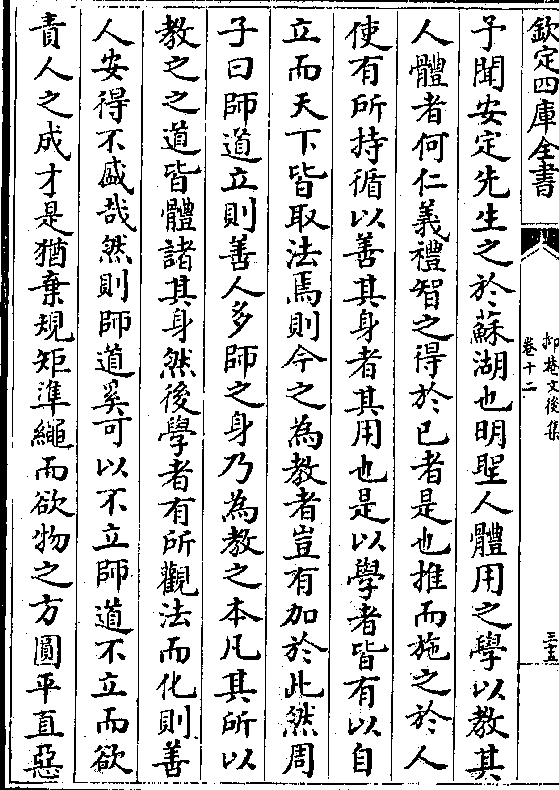 欽定四庫全書
抑菴文後集
卷十二
三五
子聞安定先生之於蘇湖也明聖人體用之學以教其
人體者何仁義禮智之得於已者是也推而施之於人
使有所持循以善其身者其用也是以學者皆有以自
立而天下皆取法焉則今之為教者豈有加於此然周
子曰師道立則善人多師之身乃為教之本凡其所以
教之之道皆體諸其身然後學者有所觀法而化則善
人安得不盛哉然則師道奚可以不立師道不立而欲
責人之成才是猶棄規矩準繩而欲物之方圓平直惡